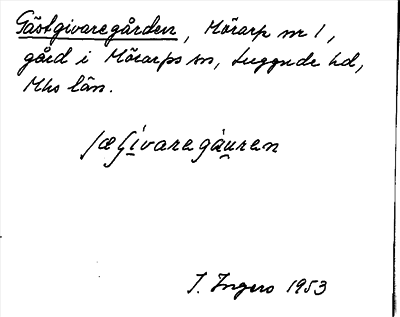 Gästgivaregården, Mörarp nr 1,
gård i Mörarps sn, Luggude hd,
Mhs län.
I. Ingers 1953